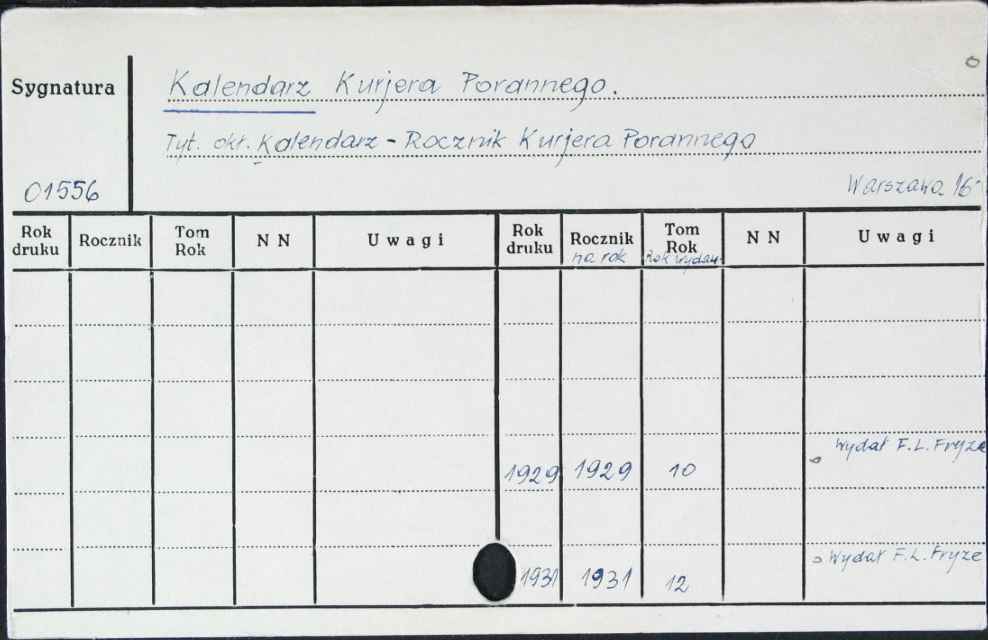 Sygnatura
Kalendarz Kurjera Porannego.
Tyt. okł. Kalendarz - Rocznik Kurjera Porannego
01556
Warszawa 16°
Rok druku Rocznik Tom Rok N N Uwagi Rok druku Rocznik na rok Tom Rok Rok wydaw N N Uwagi
Wydał F.L. Fryze
1929 1929 10
Wydał F.L. Fryze
1931 1931 12